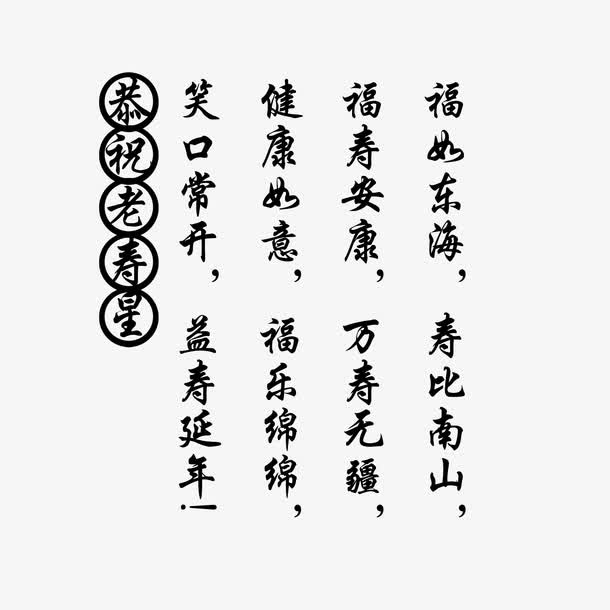 福如东海，寿比南山，
福寿安康，万寿无疆，
健康如意，福乐绵绵，
笑口常开，益寿延年！
恭祝老寿星